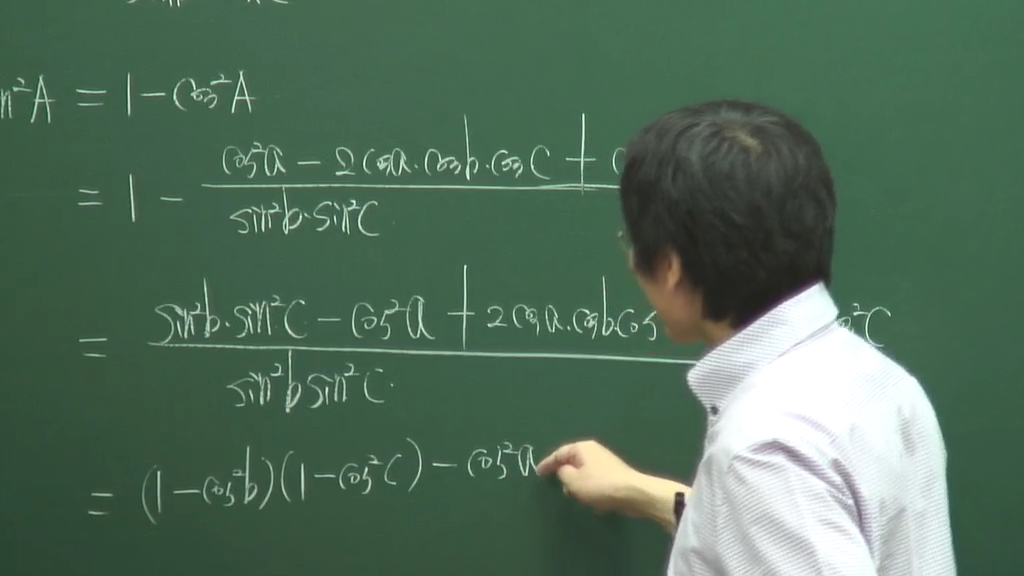 n²A = 1 - cos²A
= 1 - cos²a - 2cosa·cosb·cosc + c
sin²b·sin²c
= sin²b·sin²c - cos²a + 2cosa·cosb cos os²c
sin²b sin²c
= (1 - cos²b)(1 - cos²c) - cos²a